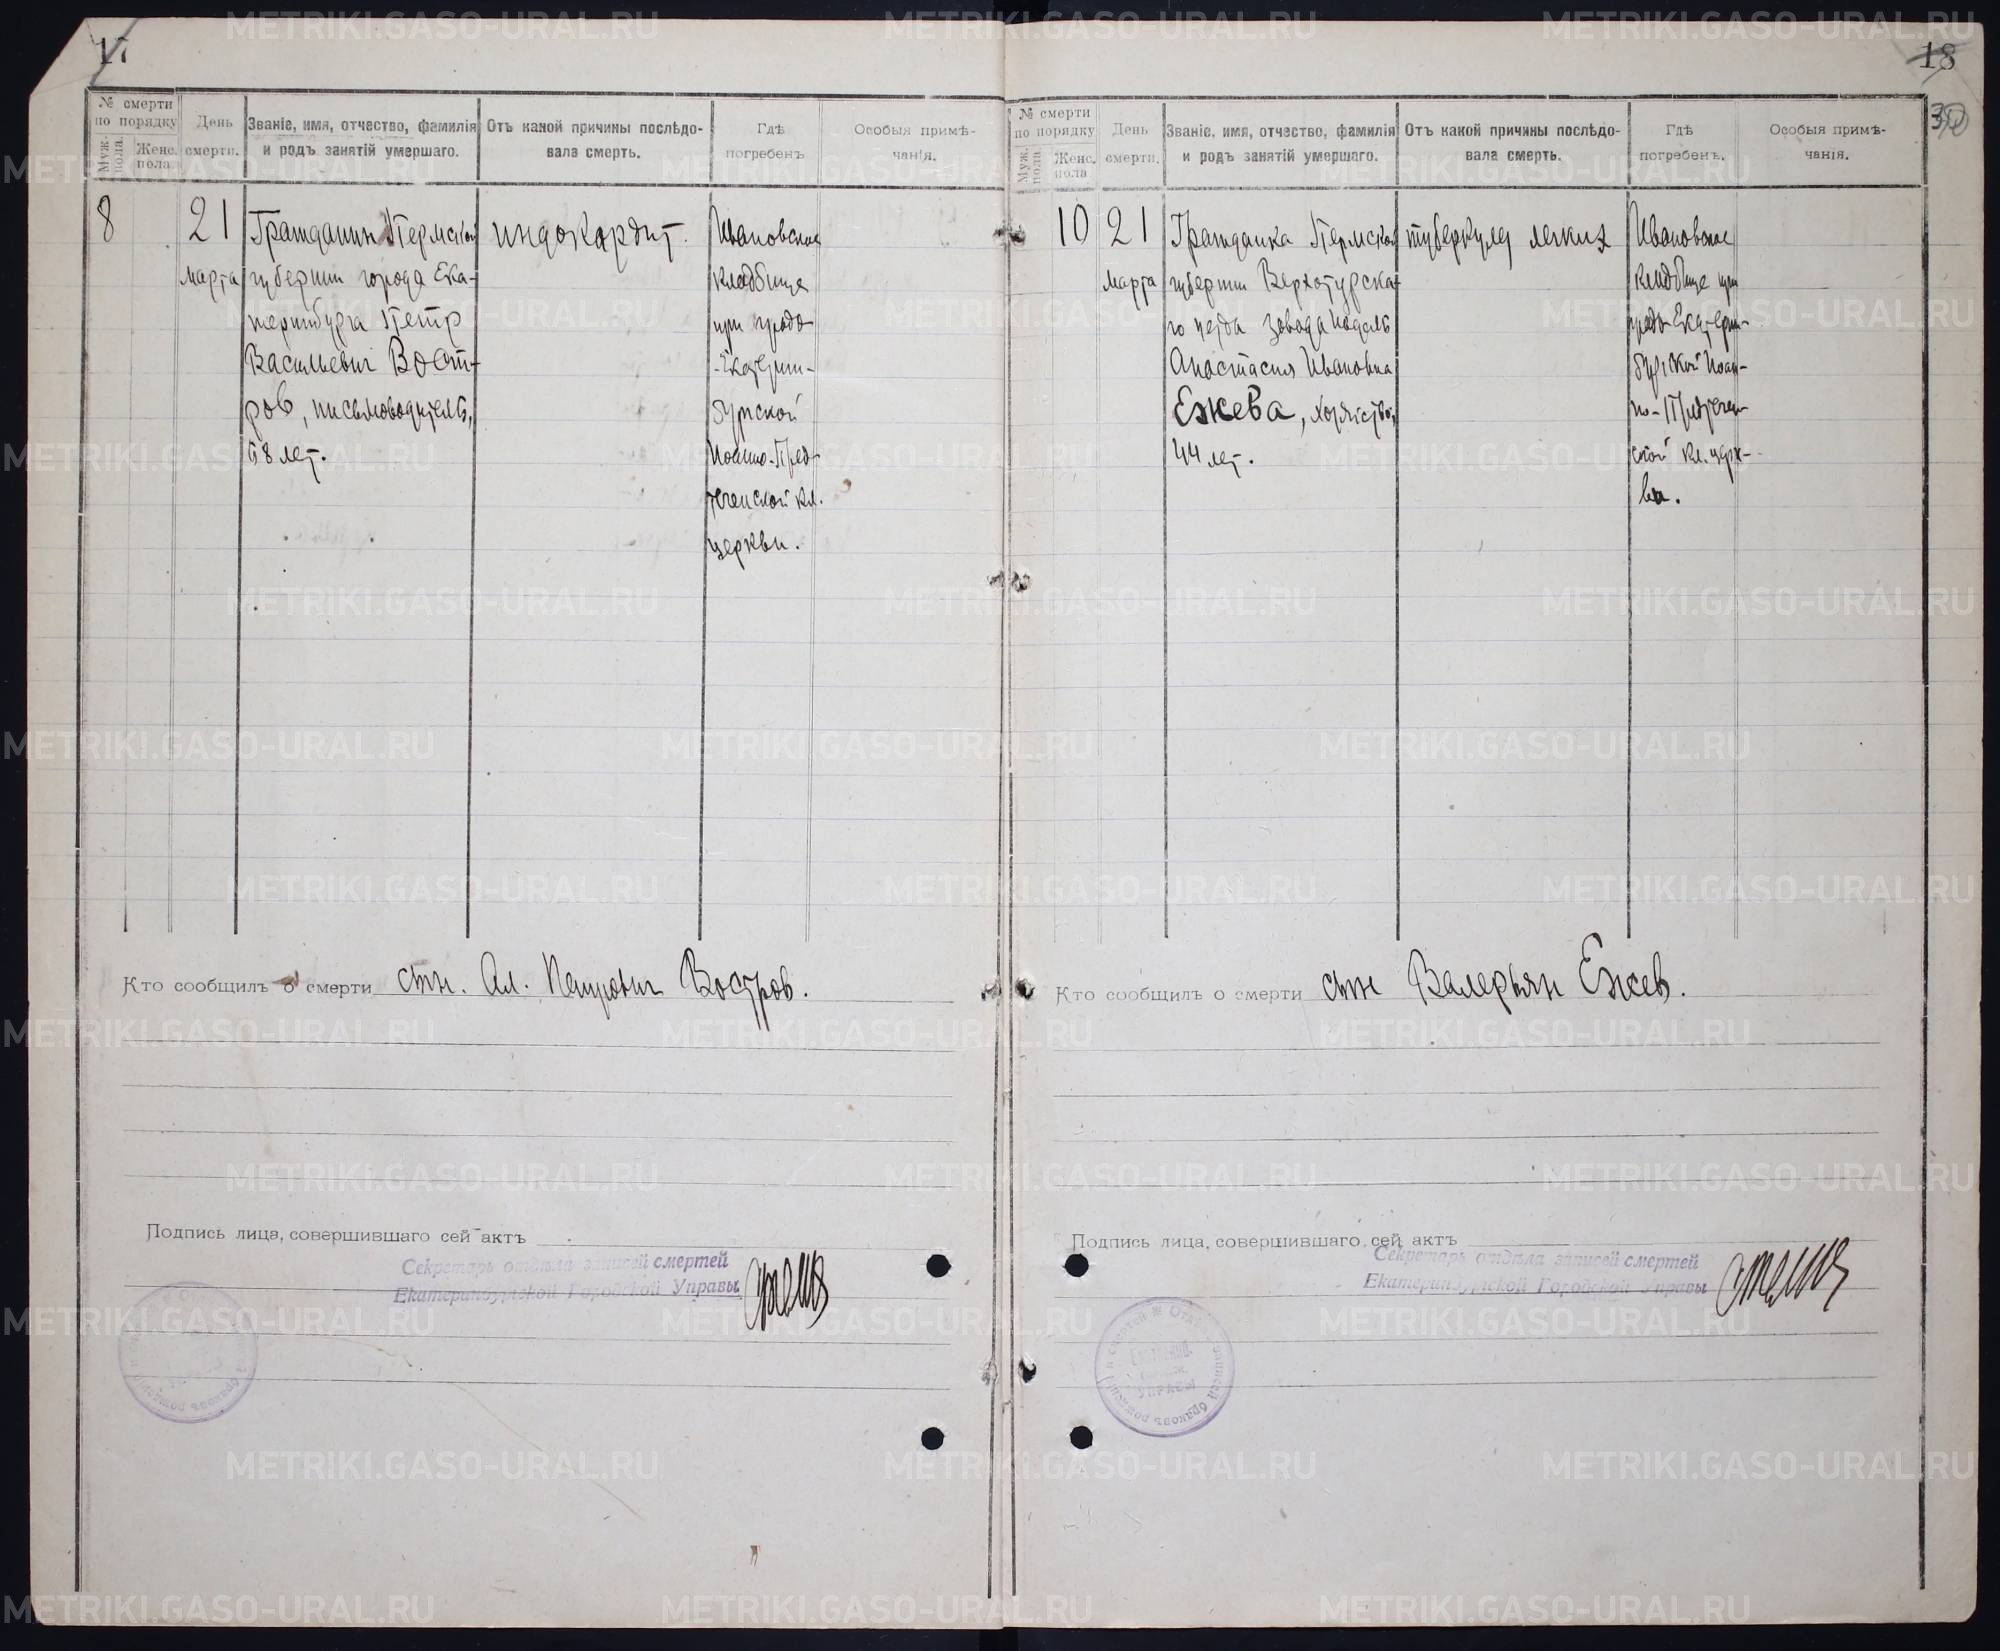 17
№ смерти
по порядку
Муж. пола.
Женс. пола.
День
смерти.
Званіе, имя, отчество, фамилія
и родъ занятій умершаго.
Отъ какой причины послѣдо-
вала смерть.
Гдѣ
погребенъ
Особыя примѣ-
чанія.
8
21
марта
Гражданин Пермской
губернии города Ека-
теринбурга Петр
Васильевич Вост-
ров, письмоводитель,
68 лет.
индокардит.
Ивановское
кладбище
при градо
-Екатерин-
бургской
Иоанно-Пред-
теченской кл.
церкви.
Кто сообщилъ о смерти сын. Ал. Петрович Востров.
Подпись лица, совершившаго сей актъ
Секретарь отдѣла записей смертей
Екатеринбургской Городской Управы
18
30
№ смерти
по порядку
Муж. пола
Женс. пола
День
смерти.
Званіе, имя, отчество, фамилія
и родъ занятій умершаго.
Отъ какой причины послѣдо-
вала смерть.
Гдѣ
погребенъ.
Особыя примѣ-
чанія.
10
21
марта
Гражданка Пермской
губернии Верхотурска-
го уезда завода
Анастасия Ивановна
Ежева, хозяйство,
44 лет.
туберкулез легких
Ивановское
кладбище при
градо-Екатерин-
бургской Иоан-
но-Предтечен-
ской кл. церк-
ви.
Кто сообщилъ о смерти сын Валерьян Ежев.
Подпись лица, совершившаго сей актъ
Секретарь отдѣла записей смертей
Екатеринбургской Городской Управы
METRIKI.GASO-URAL.RU